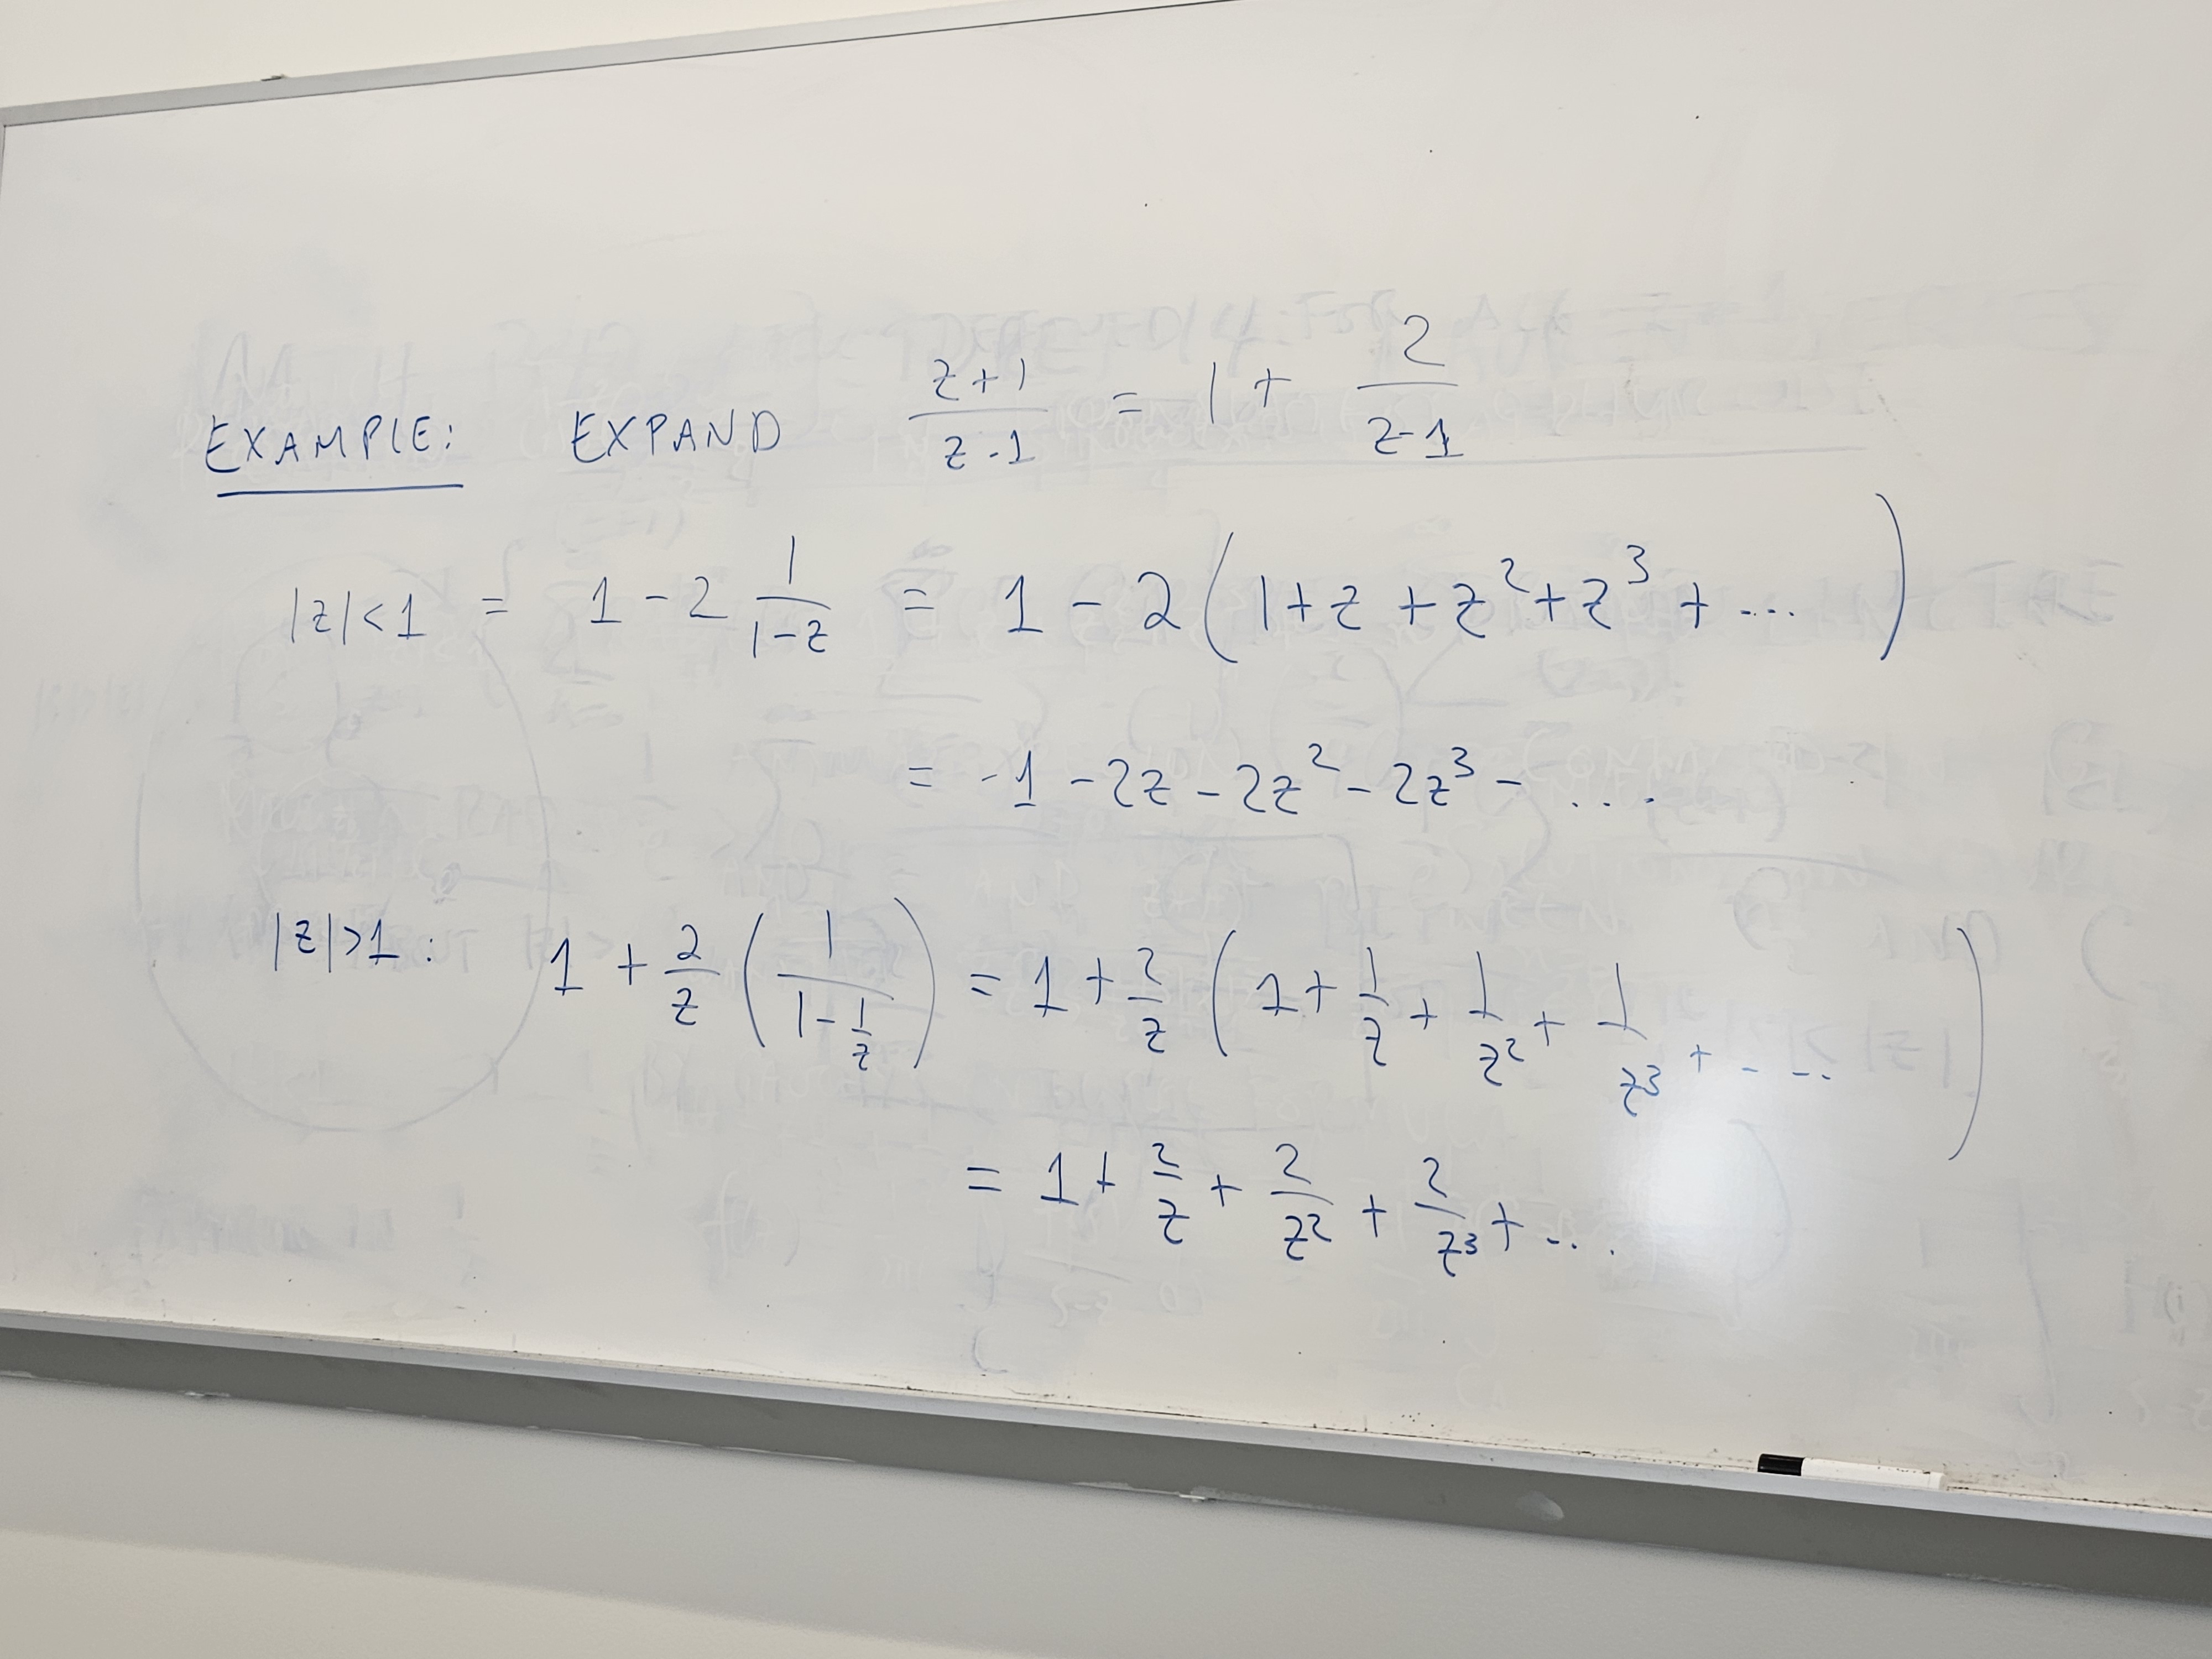 EXAMPLE: EXPAND \frac{z+1}{z-1} = 1 + \frac{2}{z-1}
|z|<1 = 1 - 2 \frac{1}{1-z} = 1 - 2 ( 1 + z + z^2 + z^3 + ... )
= -1 - 2z - 2z^2 - 2z^3 - ....
|z|>1 : 1 + \frac{2}{z} ( \frac{1}{1-\frac{1}{z}} ) = 1 + \frac{2}{z} ( 1 + \frac{1}{z} + \frac{1}{z^2} + \frac{1}{z^3} + ... )
= 1 + \frac{2}{z} + \frac{2}{z^2} + \frac{2}{z^3} + ...